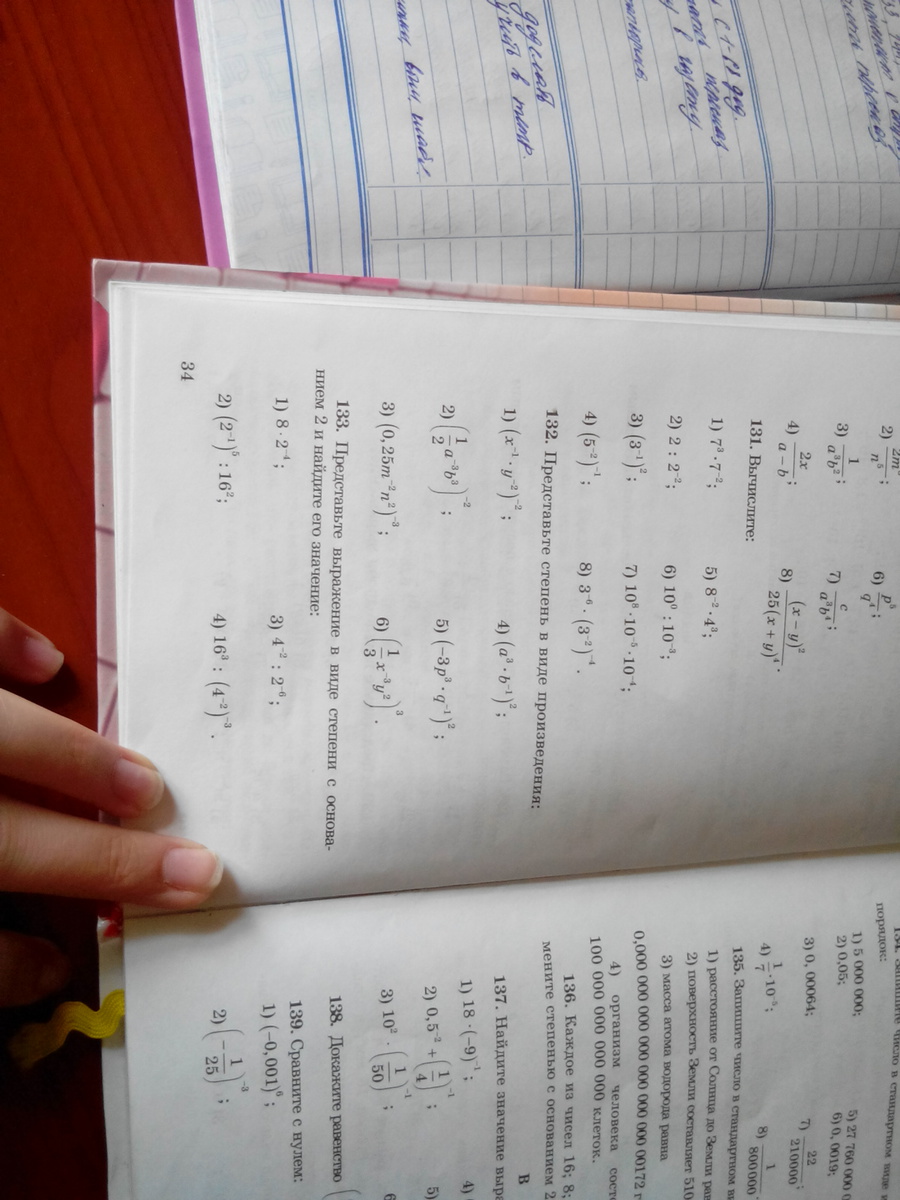 с 1-13 дод.
в тетр.
2) 2m / n⁵ ;
6) p³ / q⁴ ;
3) 1 / a³b² ;
7) c / a³b⁴ ;
4) 2x / a − b ;
8) (x − y)² / 25(x + y)⁴ .
131. Вычислите:
1) 7³ · 7⁻² ;
5) 8⁻² · 4³ ;
2) 2 : 2⁻² ;
6) 10⁰ : 10⁻³ ;
3) (3⁻¹)² ;
7) 10⁸ · 10⁻⁵ · 10⁻⁴ ;
4) (5⁻²)⁻¹ ;
8) 3⁻⁶ · (3⁻²)⁻⁴ .
132. Представьте степень в виде произведения:
1) (x⁻¹ · y⁻²)⁻² ;
4) (a³ · b⁻¹)² ;
2) (1/2 a⁻³b³)⁻² ;
5) (−3p³ · q⁻¹)² ;
3) (0,25m⁻²n²)⁻³ ;
6) (1/3 x⁻³y²)³ .
133. Представьте выражение в виде степени с основа-
нием 2 и найдите его значение:
1) 8 · 2⁻⁴ ;
3) 4⁻² : 2⁻⁶ ;
2) (2⁻¹)⁵ : 16² ;
4) 16³ : (4⁻²)⁻³ .
34
число в стандартном виде
порядок:
1) 5 000 000;
5) 27 760 000
2) 0,05;
6) 0,0019;
3) 0,00064;
7) 22 / 210000 ;
4) 1/7 · 10⁻⁵ ;
8) 1 / 800000
135. Запишите число в стандартном
1) расстояние от Солнца до Земли
2) поверхность Земли составляет 510
3) масса атома водорода равна
0,000 000 000 000 000 000 000 00172
4) организм человека
100 000 000 000 000 клеток.
136. Каждое из чисел 16; 8;
мените степенью с основанием 2
В
137. Найдите значение
1) 18 · (−9)⁻¹ ;
4)
2) 0,5⁻² + (1/4)⁻¹ ;
5)
3) 10² · (1/50)⁻¹ ;
6
138. Докажите равенство (
139. Сравните с нулем:
1) (−0,001)⁶ ;
2) (−1/25)⁻³ ;